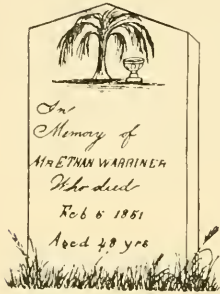 In
Memory of
Mr ETHAN WARRINER
Who died
Feb 5 1851
Aged 48 yrs